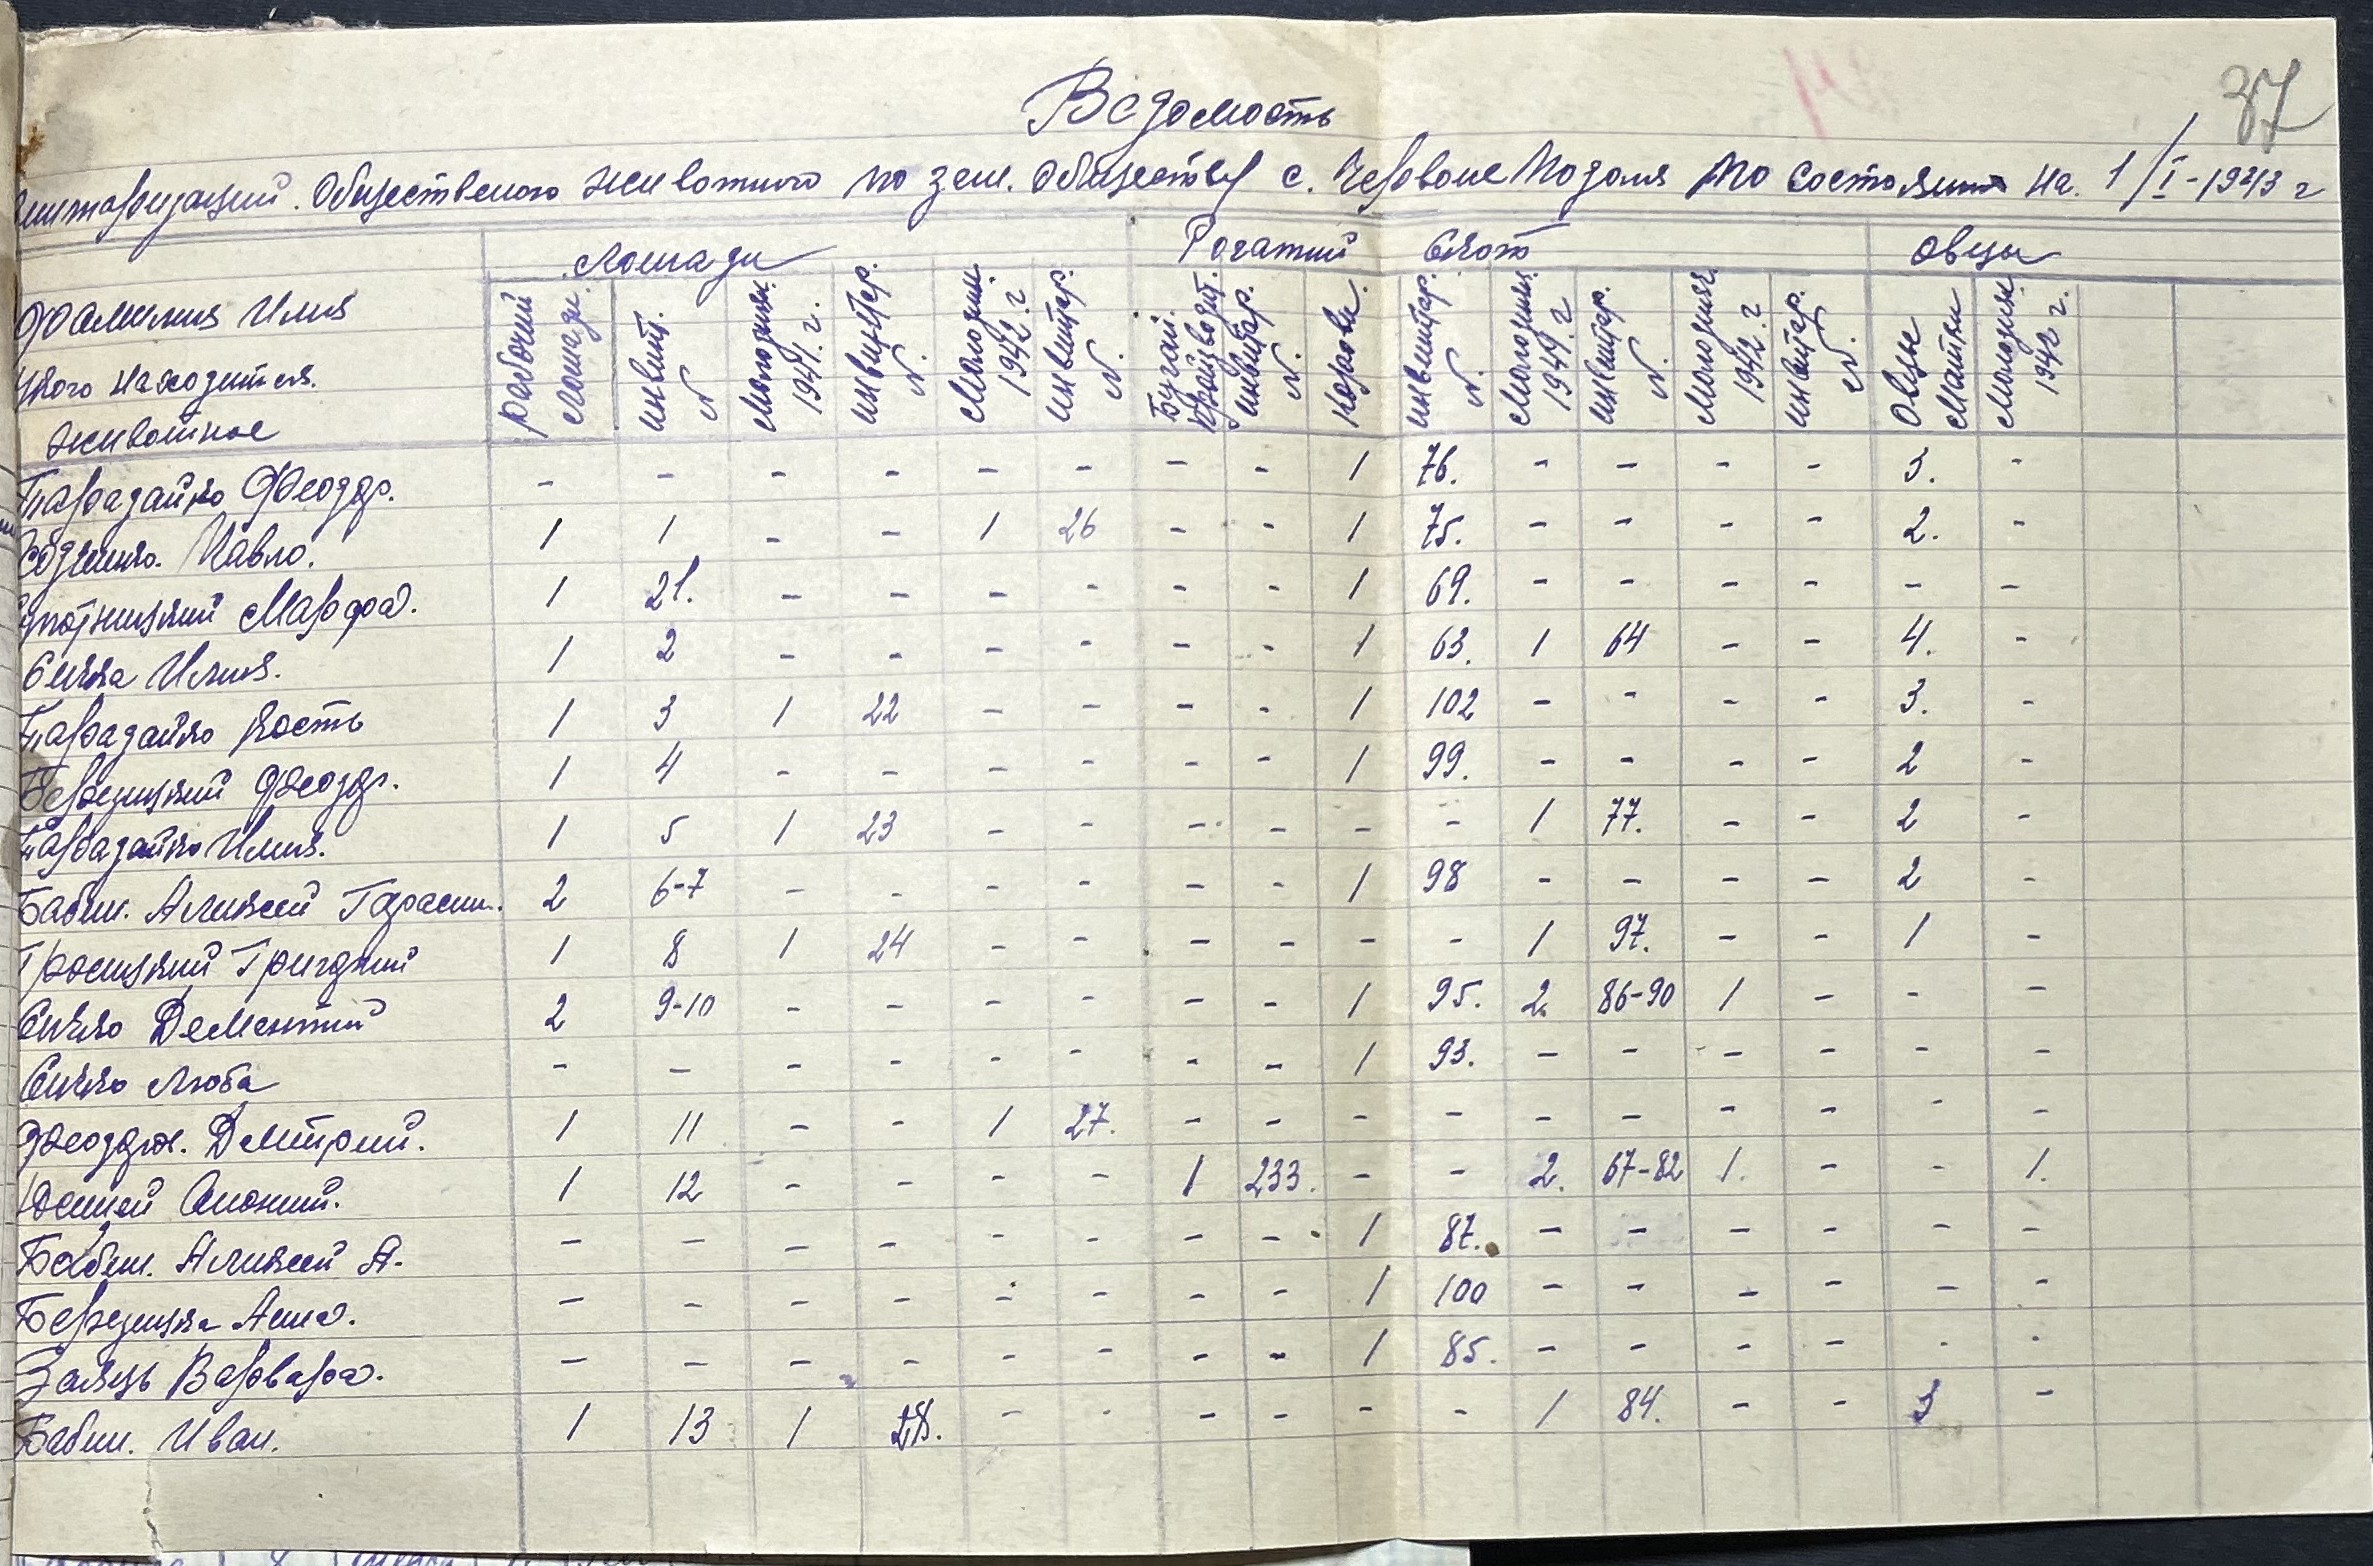 37
Ведомость
Общественого животного по зем. обществу с. Червоне Подоля по состоянию на 1/I-1943 г
Лошади Рогатий скот Овцы
Фамилия Имя
у кого находится
животное
рабочий лошади. инвент. № молодняк. 1941. г. инвентар. №. молодняк. 1942. г инвентар. №. Бугай. производит. инвентар. №. корови. инвентар. №. молодняк. 1941. г инвентар. №. молодняк. 1942. г инвентар. №. Овцы матки молодняк. 1942 г.
Парадайко Феодор. - - - - - - - - 1 76. - - - - 3. -
Павло. 1 1 - - 1 26 - - 1 75. - - - - 2. -
Марфа. 1 21. - - - - - - 1 69. - - - - - -
Сичка Илия. 1 2 - - - - - - 1 63. 1 64 - - 4. -
Парадайко Кость 1 3 1 22 - - - - 1 102 - - - - 3. -
Березицкий Феодор. 1 4 - - - - - - 1 99. - - - - 2 -
Парадайко Илия. 1 5 1 23 - - - - - - 1 77. - - 2 -
Бабин. Аликсей Гарасим. 2 6-7 - - - - - - 1 98 - - - - 2 -
Григорий 1 8 1 24 - - - - - - 1 97. - - 1 -
Сичко Дементий 2 9-10 - - - - - - 1 95. 2. 86-90 1 - - -
Сичко Люба - - - - - - - - 1 93. - - - - - -
Дмитрий. 1 11 - - 1 27. - - - - - - - - - -
1 12 - - - - 1 233. - - 2. 67-82 1. - - 1.
Бабин. Аликсей А. - - - - - - - - 1 87. - - - - - -
Березицка Анна. - - - - - - - - 1 100 - - - - - -
Заяць Варвара. - - - - - - - - 1 85. - - - - - -
Бабин. Иван. 1 13 1 - - - - - - 1 84. - - 3 -